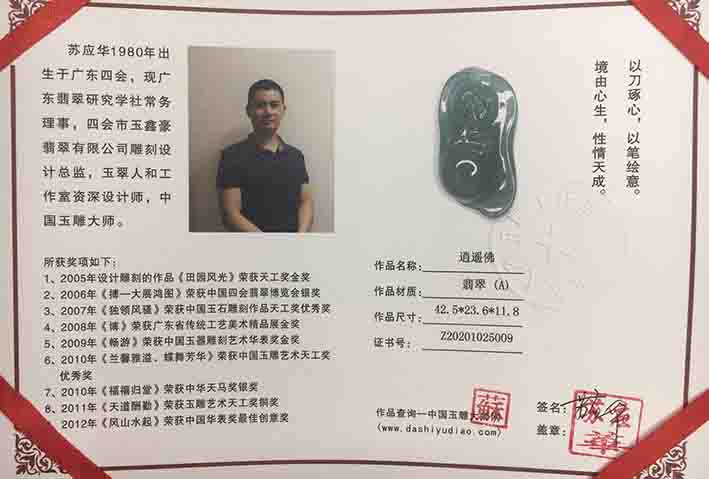 苏应华1980年出
生于广东四会，现广
东翡翠研究学社常务
理事，四会市玉鑫豪
翡翠有限公司雕刻设
计总监，玉翠人和工
作室资深设计师，中
国玉雕大师。
以刀琢心，以笔绘意。
境由心生，性情天成。
所获奖项如下：
1、2005年设计雕刻的作品《田园风光》荣获天工奖金奖
2、2006年《搏一大展鸿图》荣获中国四会翡翠博览会银奖
3、2007年《独领风骚》荣获中国玉石雕刻作品天工奖优秀奖
4、2008年《博》荣获广东省传统工艺美术精品展金奖
5、2009年《畅游》荣获中国玉器雕刻艺术华表奖金奖
6、2010年《兰馨雅溢、蝶舞芳华》荣获中国玉雕艺术天工奖
优秀奖
7、2010年《福福归堂》荣获中华天马奖银奖
8、2011年《天道酬勤》荣获玉雕艺术天工奖铜奖
、2012年《风山水起》荣获中国华表奖最佳创意奖
作品名称： 逍遥佛
作品材质： 翡翠 (A)
作品尺寸： 42.5*23.6*11.8
证书号： Z20201025009
作品查询一中国玉雕大师网
(www.dashiyudiao.com)
签名：
盖章：